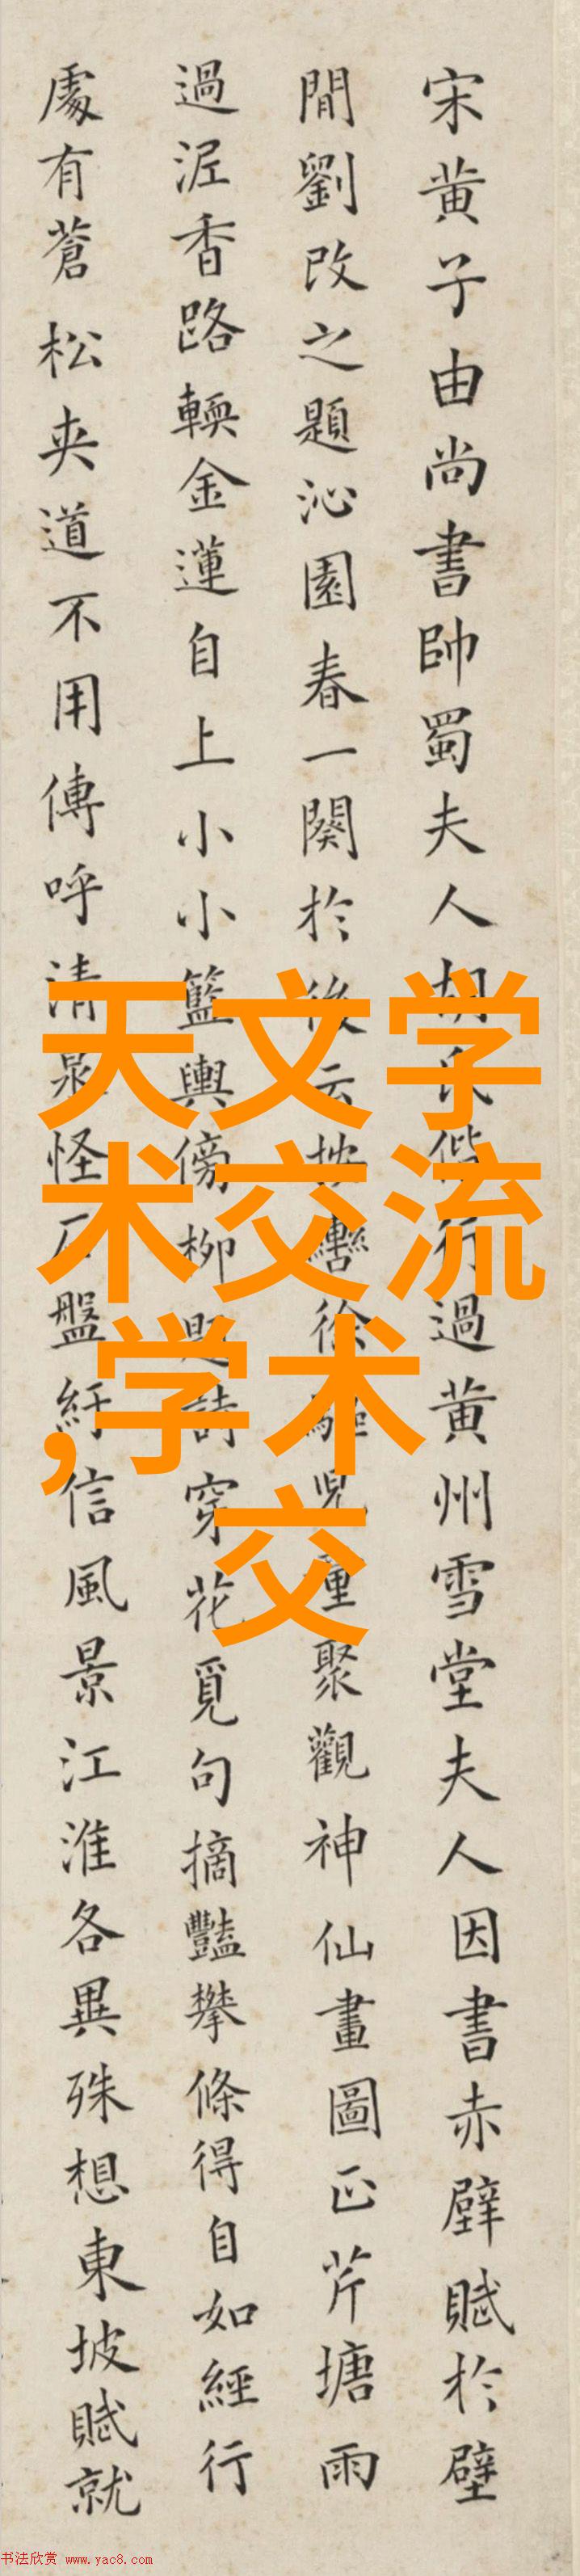 宋黄子由尚書帥蜀夫人胡氏偕行過黄州雪堂夫人因書赤壁賦於壁
間劉改之題沁園春一闋於後云按轡徐驅兒童聚觀神仙畫圖正芹塘雨
過泥香路輭金蓮自上小小籃輿傍柳題詩穿花覓句摘豔攀條得自如經行
處有蒼松夾道不用傳呼清泉怪石盤紆信風景江淮各異殊想東坡賦就
天文学
术交流
,学术
交
书法欣赏 www.yac8.com